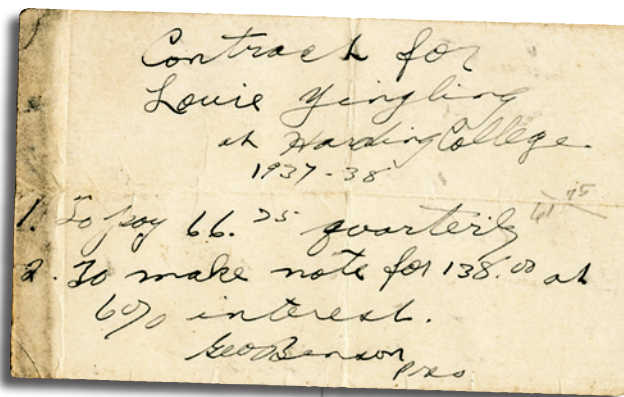 Contract for
Louie Yingling
at Harding College.
1937-38
1. To pay 66.75 quarterly
2. To make note for 138.00 at
6% interest.
Geo Benson
Pres